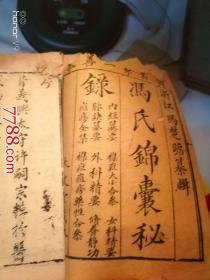 江馮楚瞻纂輯
馮氏錦囊秘
錄
內經纂要 雜症大小合參 女科精要
脉訣纂要 外科精要 修養靜功
痘疹全集 雜症痘疹藥性合參
今
興
許嗣宗
7788.com